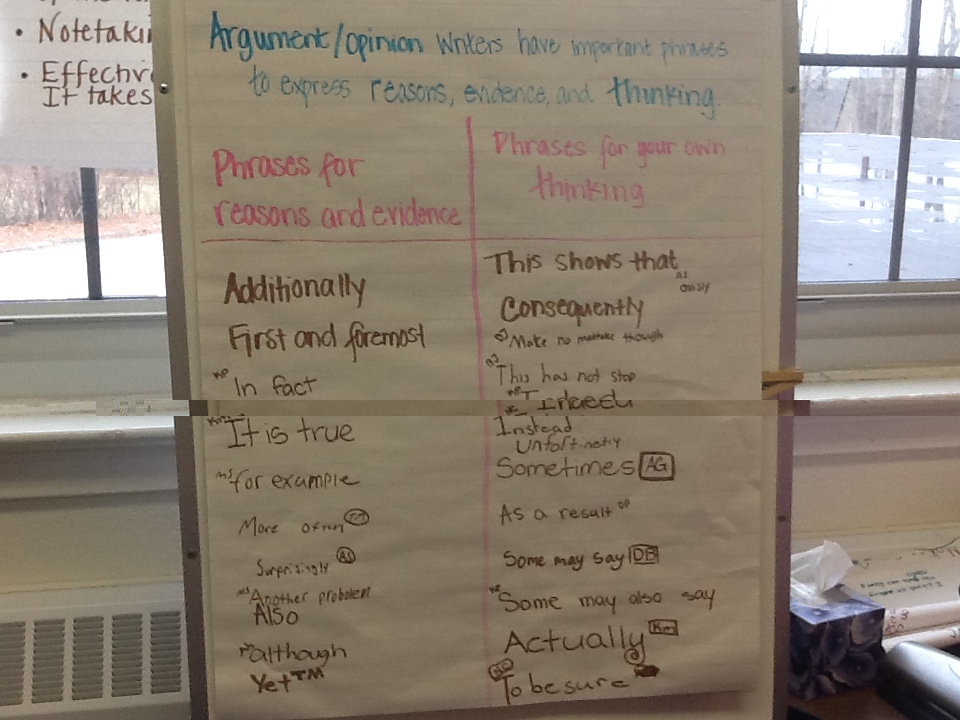 • Notetaki
• Effectiv
It takes
Argument/opinion writers have important phrases
to express reasons, evidence, and thinking.
Phrases for
reasons and evidence
Additionally
First and foremost
In fact
It is true
for example
More ofren TM
Surprisingly AJ
Another problem
Also
although
Yet TM
Phrases for your own
thinking
This shows that
Consequently
Make no mistake though
This has not stop
Indeed
Instead
Unfortinetly
Sometimes AG
As a result
Some may say DB
Some may also say
Actually Km
To be sure